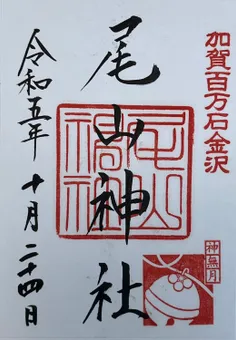 加賀百万石金沢
尾山神社
尾山神社
神無月
令和五年 十月二十四日